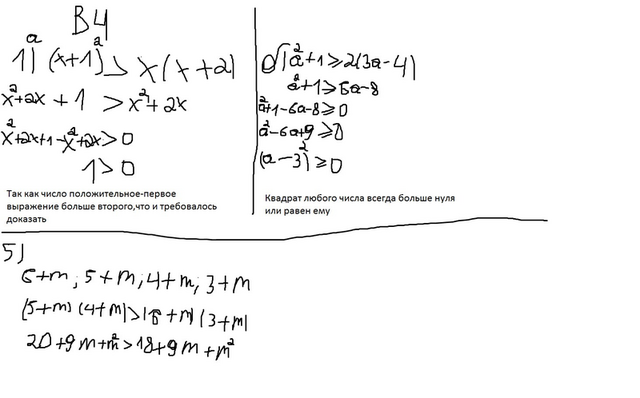 В4
1) а (x+1)² > x(x+2)
x²+2x+1 > x²+2x
x²+2x+1-x²+2x>0
1>0
Так как число положительное-первое
выражение больше второго,что и требовалось
доказать
a²+1≥2(3a-4)
a²+1≥6a-8
a²+1-6a-8≥0
a²-6a+9≥0
(a-3)²≥0
Квадрат любого числа всегда больше нуля
или равен ему
5)
6+m; 5+m; 4+m; 3+m
(5+m)(4+m)>(6+m)(3+m)
20+9m+m²>18+9m+m²